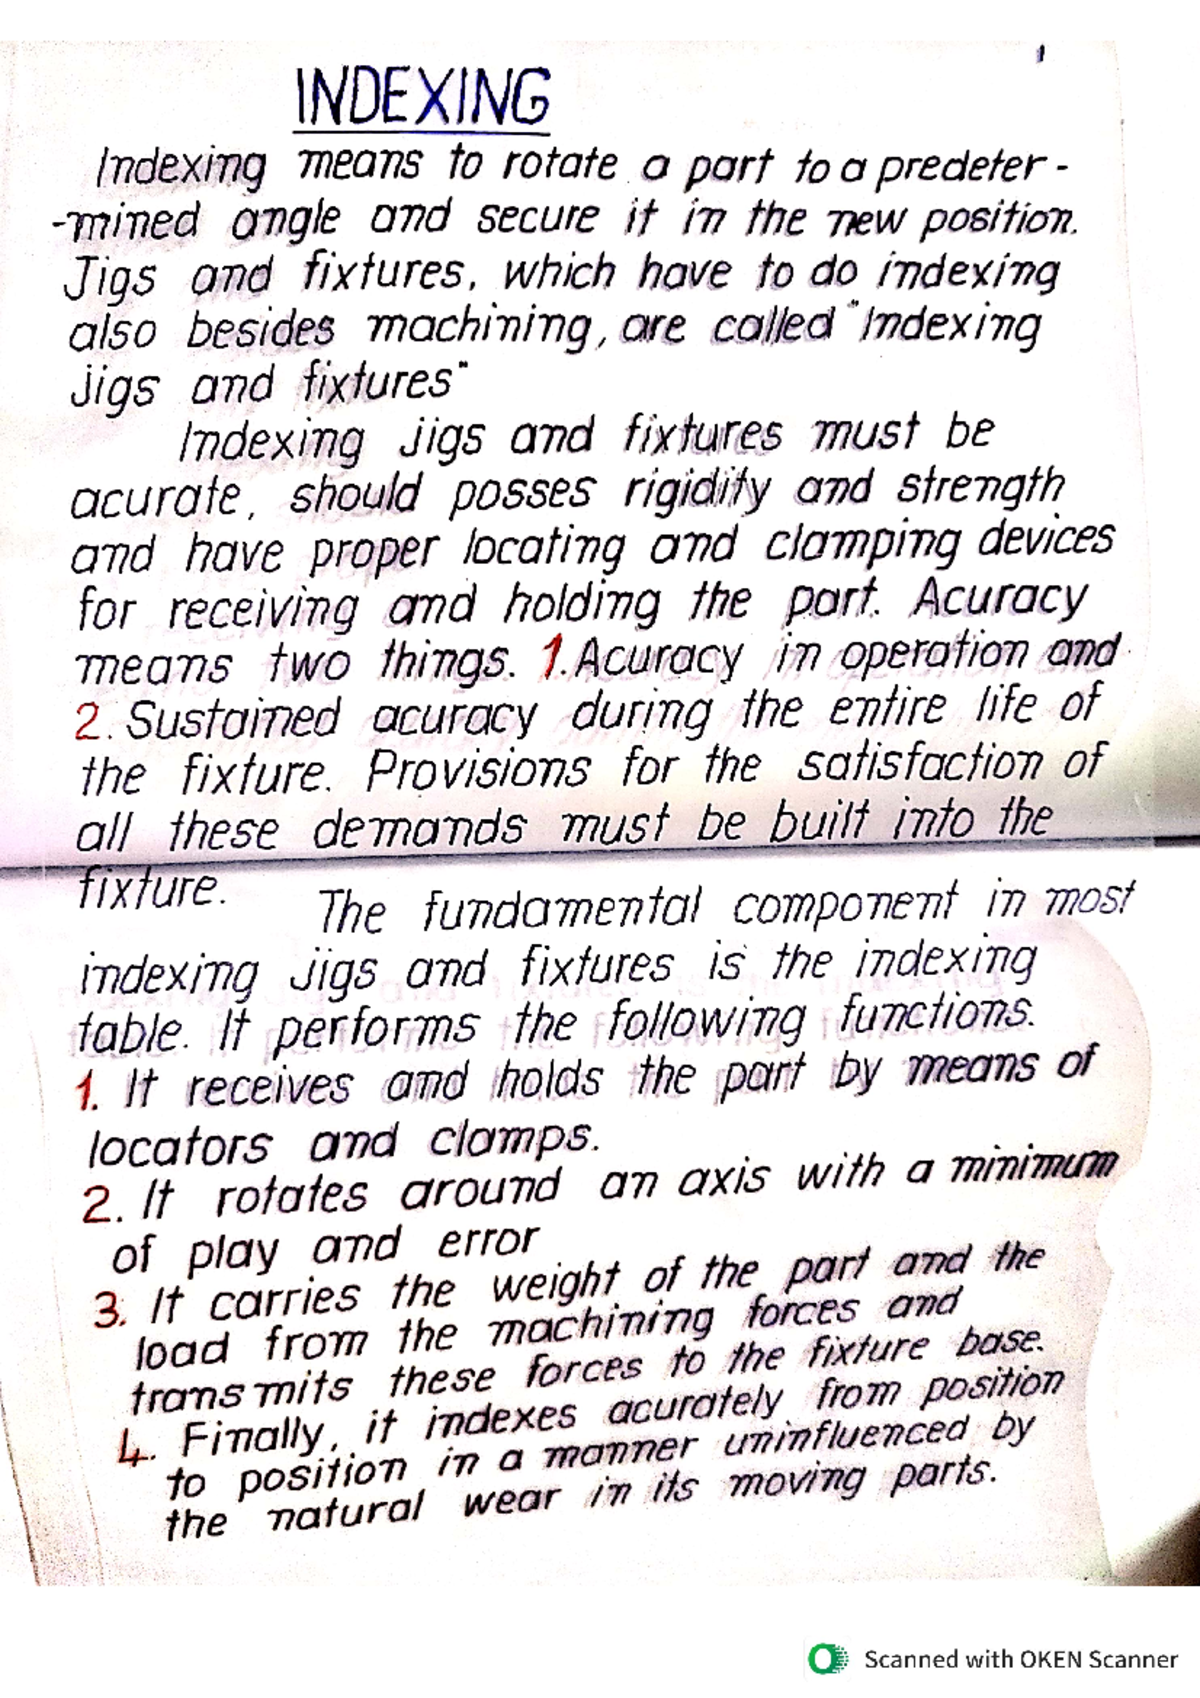 INDEXING
Indexing means to rotate a part to a predeter-
-mined angle and secure it in the new position.
Jigs and fixtures, which have to do indexing
also besides machining, are called "Indexing
Jigs and fixtures"
Indexing Jigs and fixtures must be
acurate, should posses rigidity and strength
and have proper locating and clamping devices
for receiving and holding the part. Acuracy
means two things. 1. Acuracy in operation and
2. Sustained acuracy during the entire life of
the fixture. Provisions for the satisfaction of
all these demands must be built into the
fixture.
The fundamental component in most
indexing Jigs and fixtures is the indexing
table. It performs the following functions.
1. It receives and holds the part by means of
locators and clamps.
2. It rotates around an axis with a minimum
of play and error
3. It carries the weight of the part and the
load from the machining forces and
transmits these forces to the fixture base.
4. Finally, it indexes acurately from position
to position in a manner uninfluenced by
the natural wear in its moving parts.
Scanned with OKEN Scanner